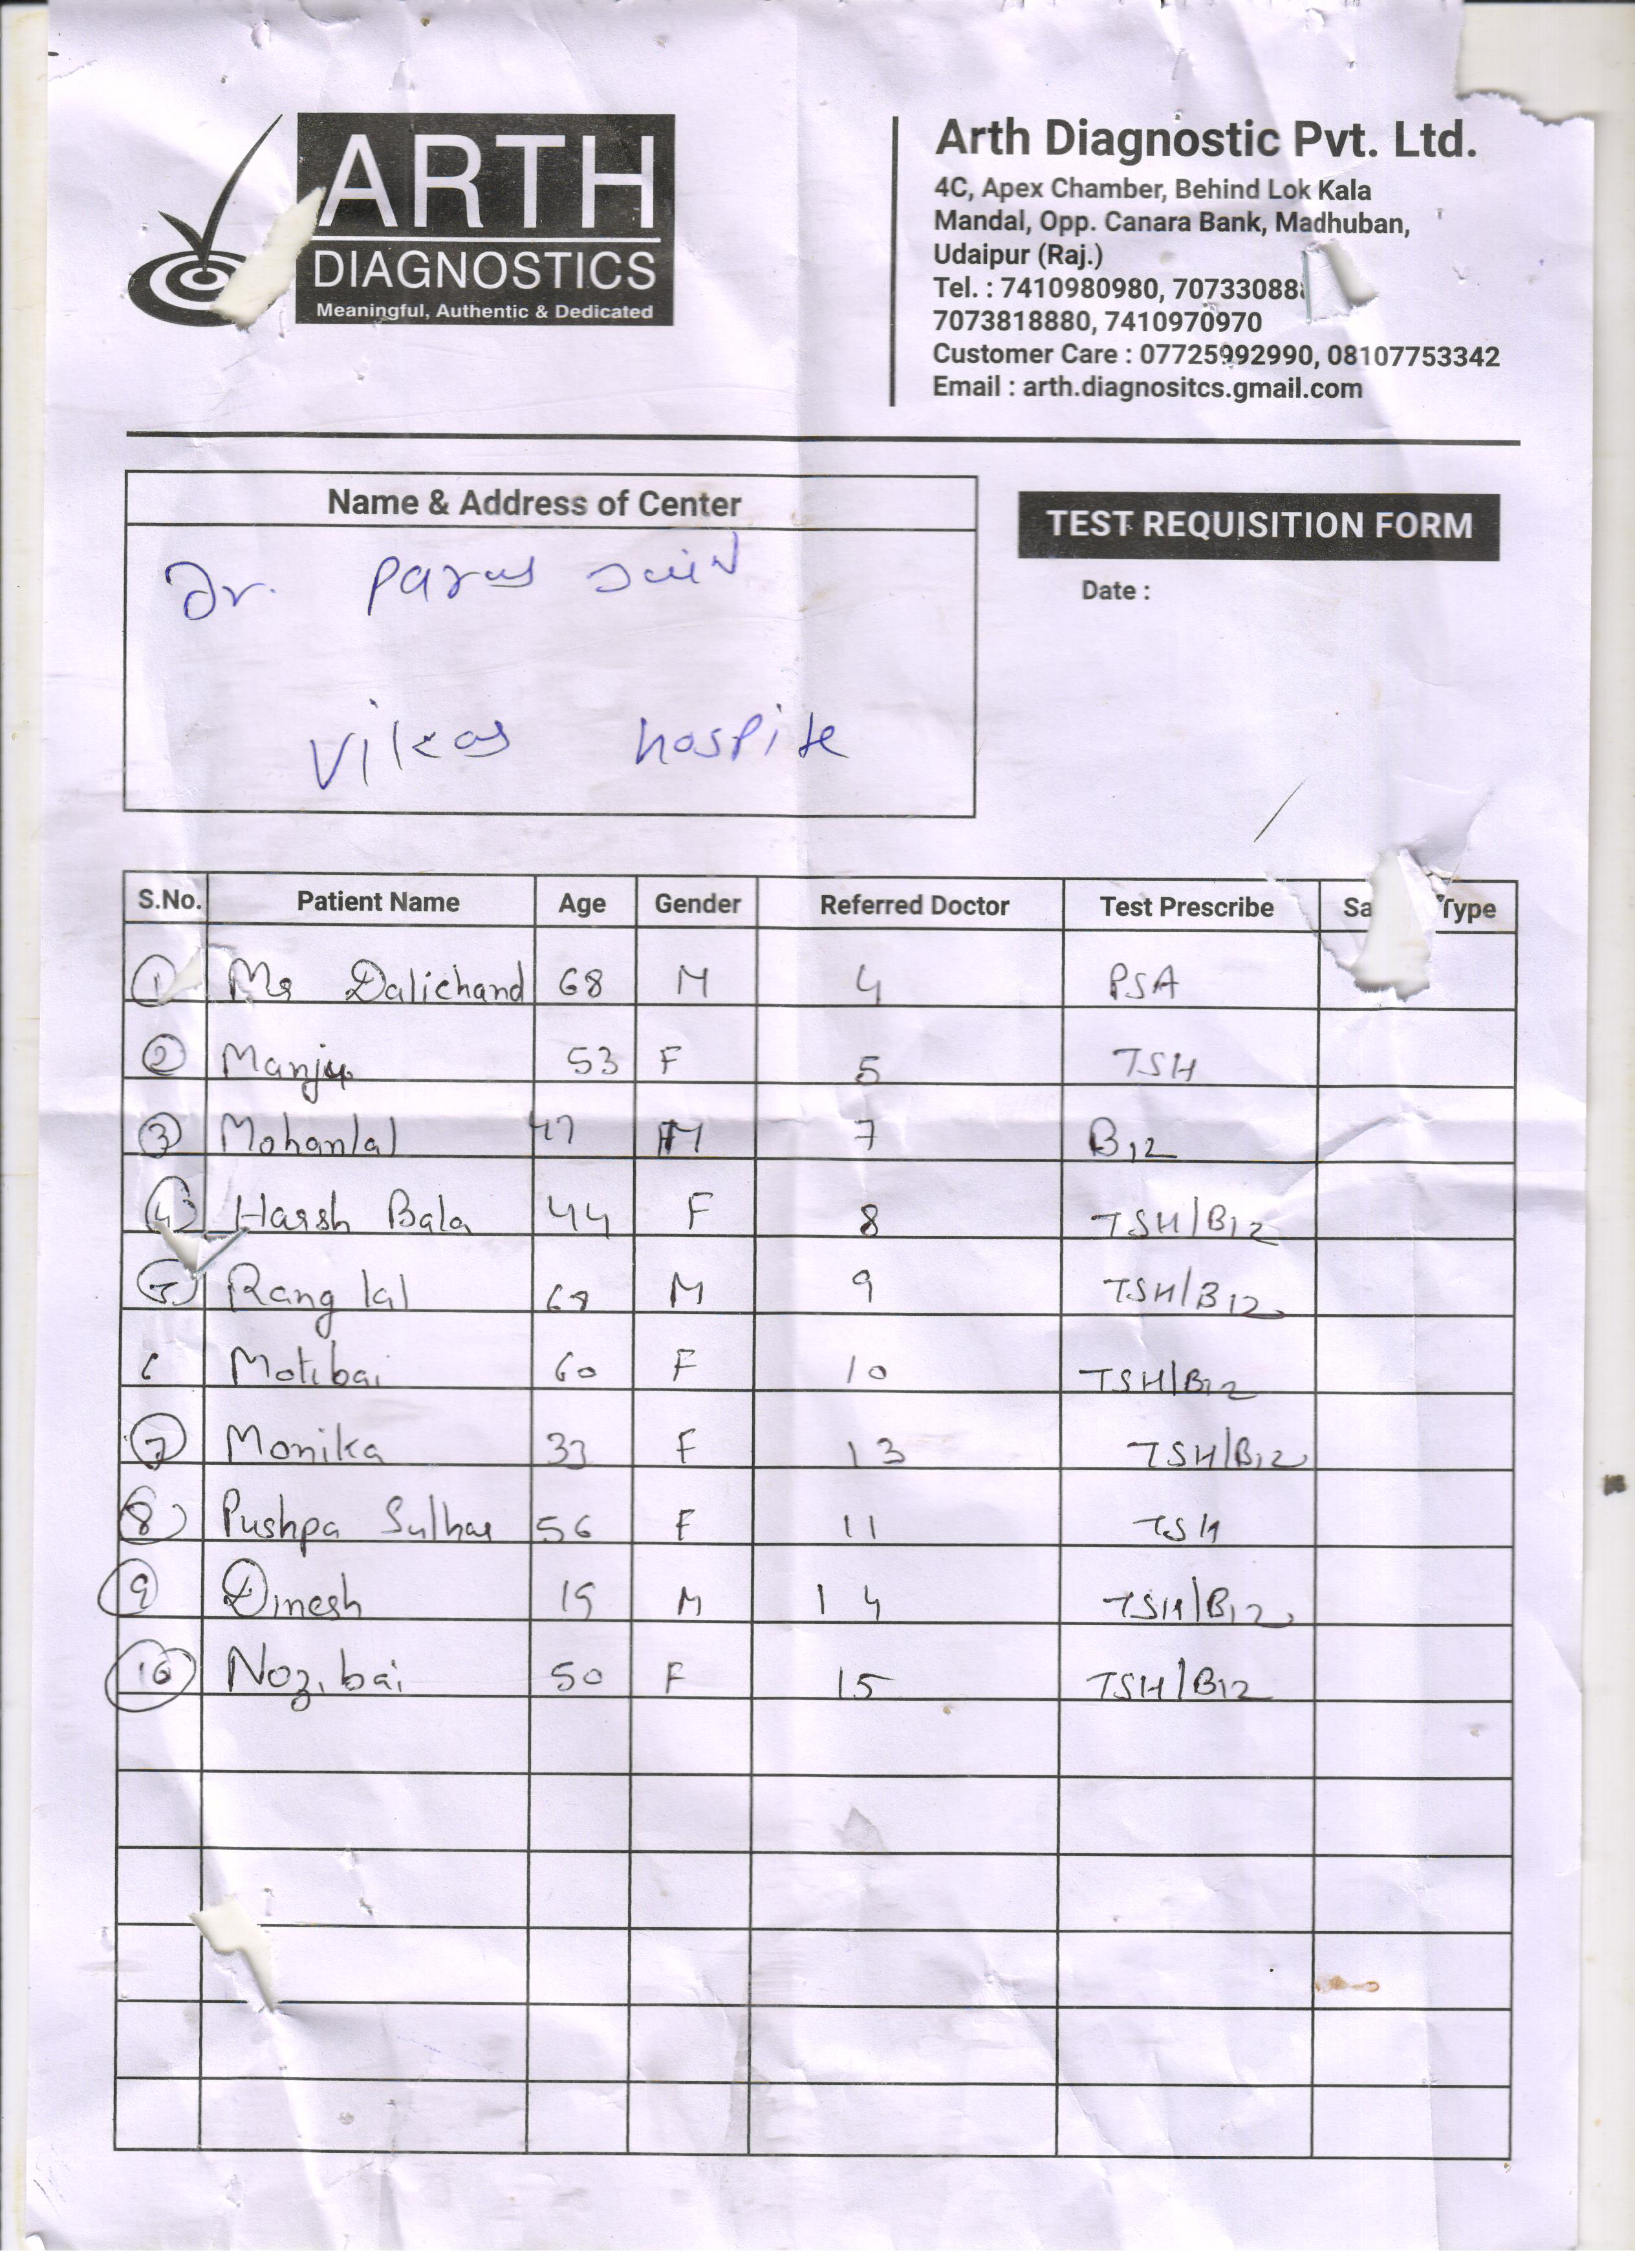 ARTH
DIAGNOSTICS
Meaningful, Authentic & Dedicated
Arth Diagnostic Pvt. Ltd.
4C, Apex Chamber, Behind Lok Kala
Mandal, Opp. Canara Bank, Madhuban,
Udaipur (Raj.)
Tel. : 7410980980, 70733088
7073818880, 7410970970
Customer Care : 07725992990, 08107753342
Email : arth.diagnositcs.gmail.com
Name & Address of Center
TEST REQUISITION FORM
Date :
Dr. Paras
Vikas hospite
S.No. Patient Name Age Gender Referred Doctor Test Prescribe Sa Type
1 Mr Dalichand 68 M 4 PSA
2 Manju 53 F 5 TSH
3 Mohanlal 47 M 7 B12
4 Harsh Bala 44 F 8 TSH/B12
5 Rang lal M 9 TSH/B12
6 Motibai 60 F 10 TSH/B12
7 Monika 33 F 13 TSH/B12
8 Pushpa 56 F 11 TSH
9 Dinesh 19 M 14 TSH/B12
10 Nozibai 50 F 15 TSH/B12